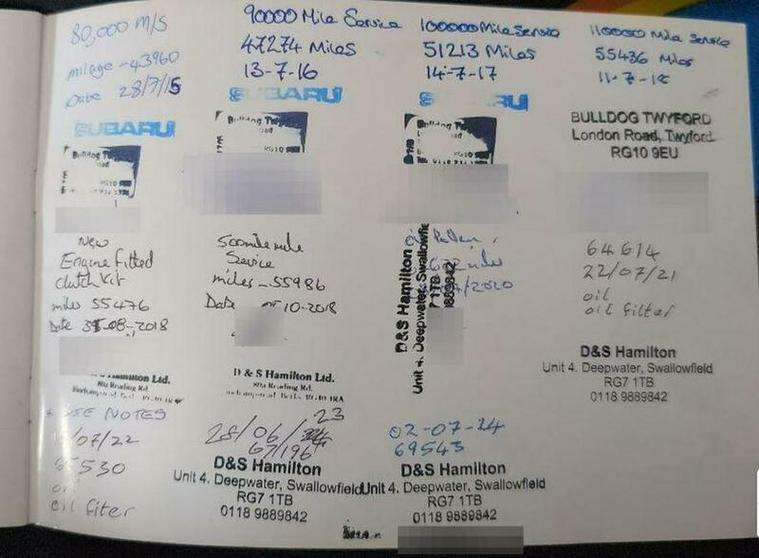 80,000 M/S
milage - 43960
Date 28/7/15
SUBARU
Bulldog
90000 Mile Service
47274 Miles
13-7-16
SUBARU
Bulldog
RG10
100000 Mile Service
51213 Miles
14-7-17
110000 Mile Service
55436 Miles
11-7-18
BULLDOG TWYFORD
London Road, Twyford
RG10 9EU
New
Engine fitted
Clutch Kit
miles 55476
Date 31-08-2018
Hamilton Ltd.
500 mile
Service
miles - 55986
Date 10-2018
D & S Hamilton Ltd.
oil
/2020
D&S Hamilton
Unit 4. Deepwater, Swallowfie
7 1TB
9889842
64614
22/07/21
oil
oil filter
D&S Hamilton
Unit 4. Deepwater, Swallowfield
RG7 1TB
0118 9889842
SEE NOTES
/07/22
5530
oil filter
28/06/23
67196
D&S Hamilton
Unit 4. Deepwater, Swallowfield
RG7 1TB
0118 9889842
02-07-24
69543
D&S Hamilton
Unit 4. Deepwater, Swallowfield
RG7 1TB
0118 9889842